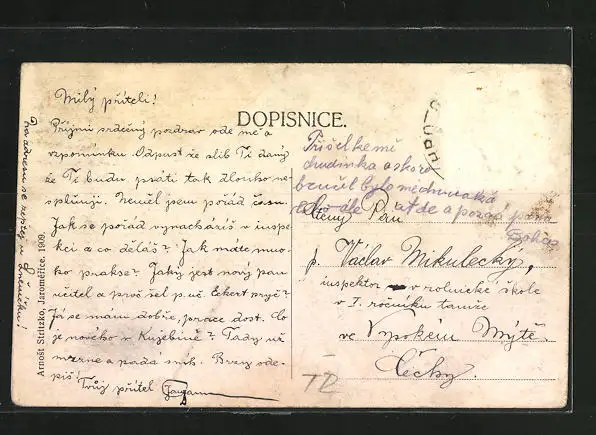 Milý příteli!
Přijmi srdečný pozdrav ode mě a
vzpomínku. Odpusť že slib Ti daný
že Ti budu psáti tak dlouho ne-
splňuji. Neměl jsem pořád času.
Jak se pořád vynacházíš v inspe-
kci a co děláš? Jak máte mno-
ho prakse? Jaký jest nový pan
učitel a proč šel p. uč. Eckert pryč?
Já se mám dobře, práce dost. Co
je nového v Kujebině? Tady už
mrzne a padá sníh. Brzy ode-
piš! Tvůj přítel
Na adresu se zeptej u
Arnošt Stritzko, Jaroměřice. 1909.
DOPISNICE.
Přišel ke mě
chudinka a skoro
brečel bylo
a pozdr
Ctěný Pan
p. Václav Mikulecký,
inspektor v rolnické škole
v I. ročníku tamže
ve Vysokém Mýtě.
Čechy.
TD